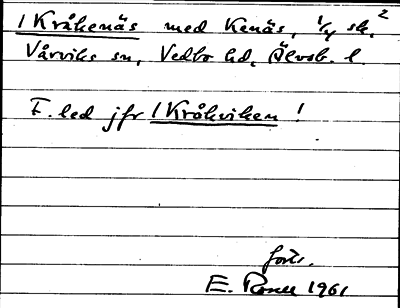 1 Kråkenäs med Kenäs, 1/4 sk. 2
Vårviks sn, Vedbo hd, Älvsb. l.
F. led jfr 1 Kråkviken !
forts.
E. Rosell 1961